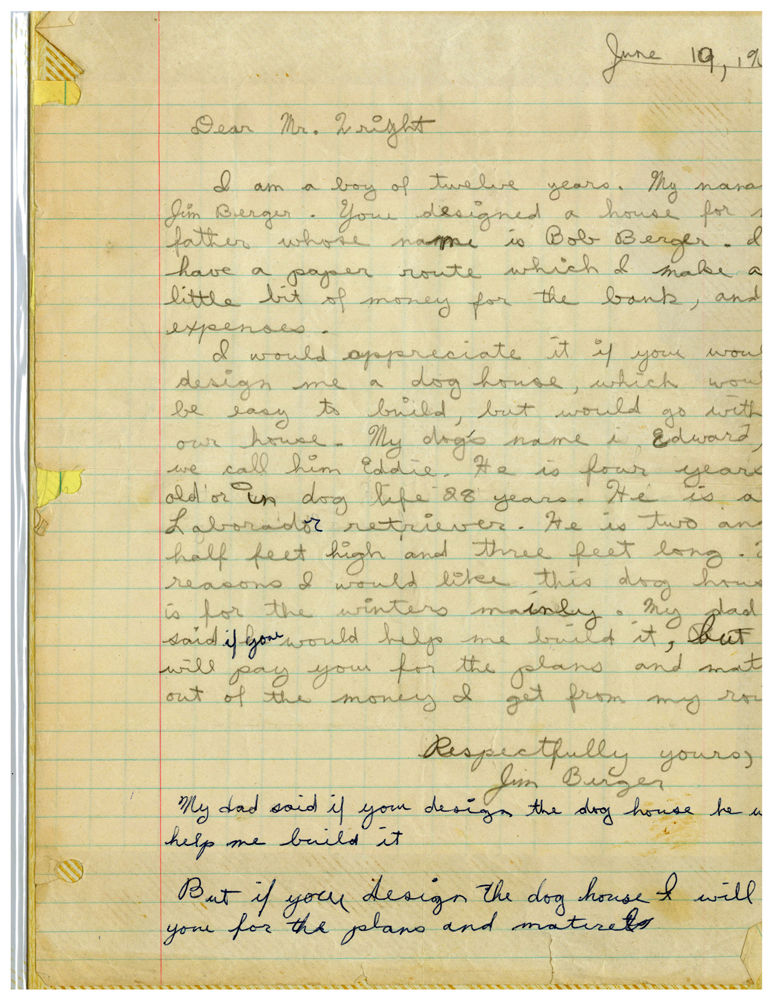 June 19, 19
Dear Mr. Wright
I am a boy of twelve years. My name
Jim Berger. You designed a house for
father whose name is Bob Berger. I
have a paper route which I make a
little bit of money for the bank, and
expenses.
I would appreciate it if you woul
design me a dog house, which woul
be easy to build, but would go with
our house. My dog's name i Edward,
we call him Eddie. He is four years
old or in dog life 28 years. He is a
Labrador retriever. He is two an
half feet high and three feet long.
reasons I would like this dog hous
is for the winters mainly. My dad
said if you would help me build it, but
will pay you for the plans and mat
out of the money I get from my rou
Respectfully yours,
Jim Berger
My dad said if you design the dog house he w
help me build it
But if you design the dog house I will
you for the plans and materels